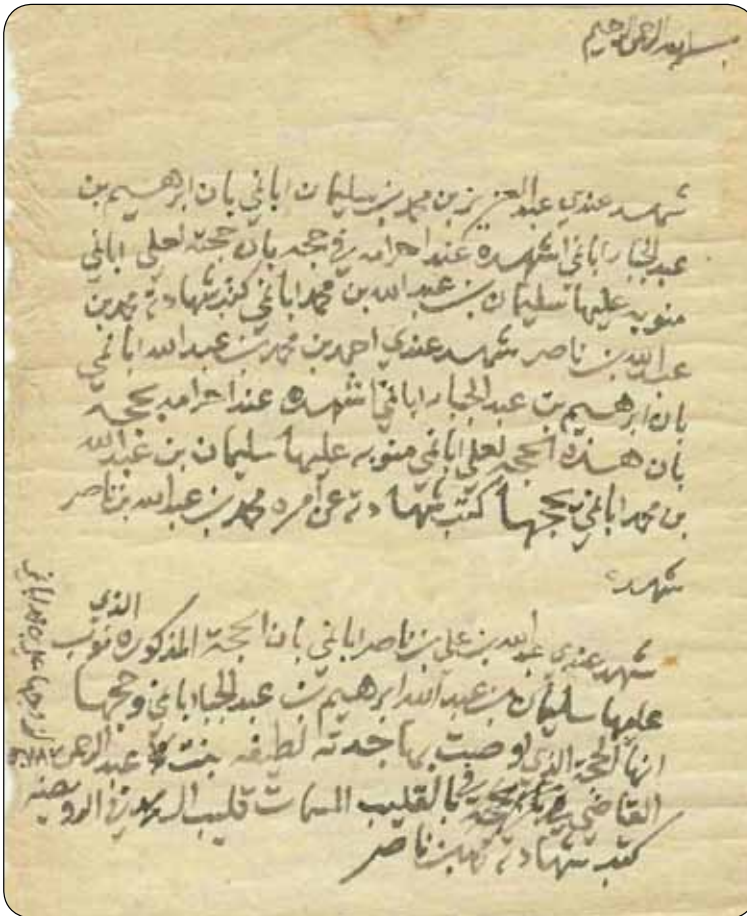 بسم الله الرحمن الرحيم
شهد عندي عبدالعزيز بن محمد بن سليمان اباني بان ابرهيم بن
عبدالجبار اباني اشهده عند احرامه في حجه بان حجته لعلي اباني
منوبه عليها سليمان بن عبدالله بن محمد اباني كتب شهادته محمد بن
عبدالله بن ناصر شهد عندي احمد بن محمد بن عبدالله اباني
بان ابرهيم بن عبدالجبار اباني اشهده عند احرامه بحجه
بان هذه الحجه لعلي اباني منوبه عليها سليمان بن عبدالله
بن محمد اباني بحجها كتب شهادته عن امره محمد بن عبدالله بن ناصر
شهد
شهد عندي عبدالله بن علي بن ناصر اباني بان الحجة المذكوره الذي نوب
عليها سليمان بن عبدالله ابرهيم بن عبدالجبار اباني وحجها
انها الحجة الذي اوصبت بها جدته لطيفه بنت عبدالرحمن
القاضي بالقليب المسمات قليب في الرويضه
كتب شهادته محمد بن ناصر